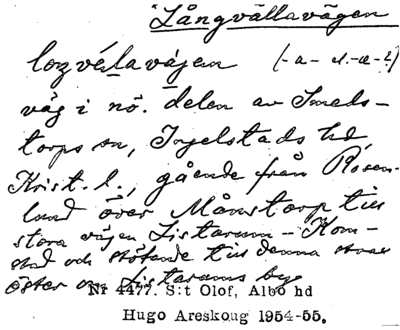 Långvällavägen
lozvélavájen (-a- el. -a-?)
väg i nö. delen av Smeds-
torps sn, Ingelstads hd,
Krist. l., gående från Rosen-
lund över Månstorp till
stora vägen Listarum - Kom-
stad och stötande till denna strax
öster om Listarums by.
Nr 4477. S:t Olof, Albo hd
Hugo Areskoug 1954-55.